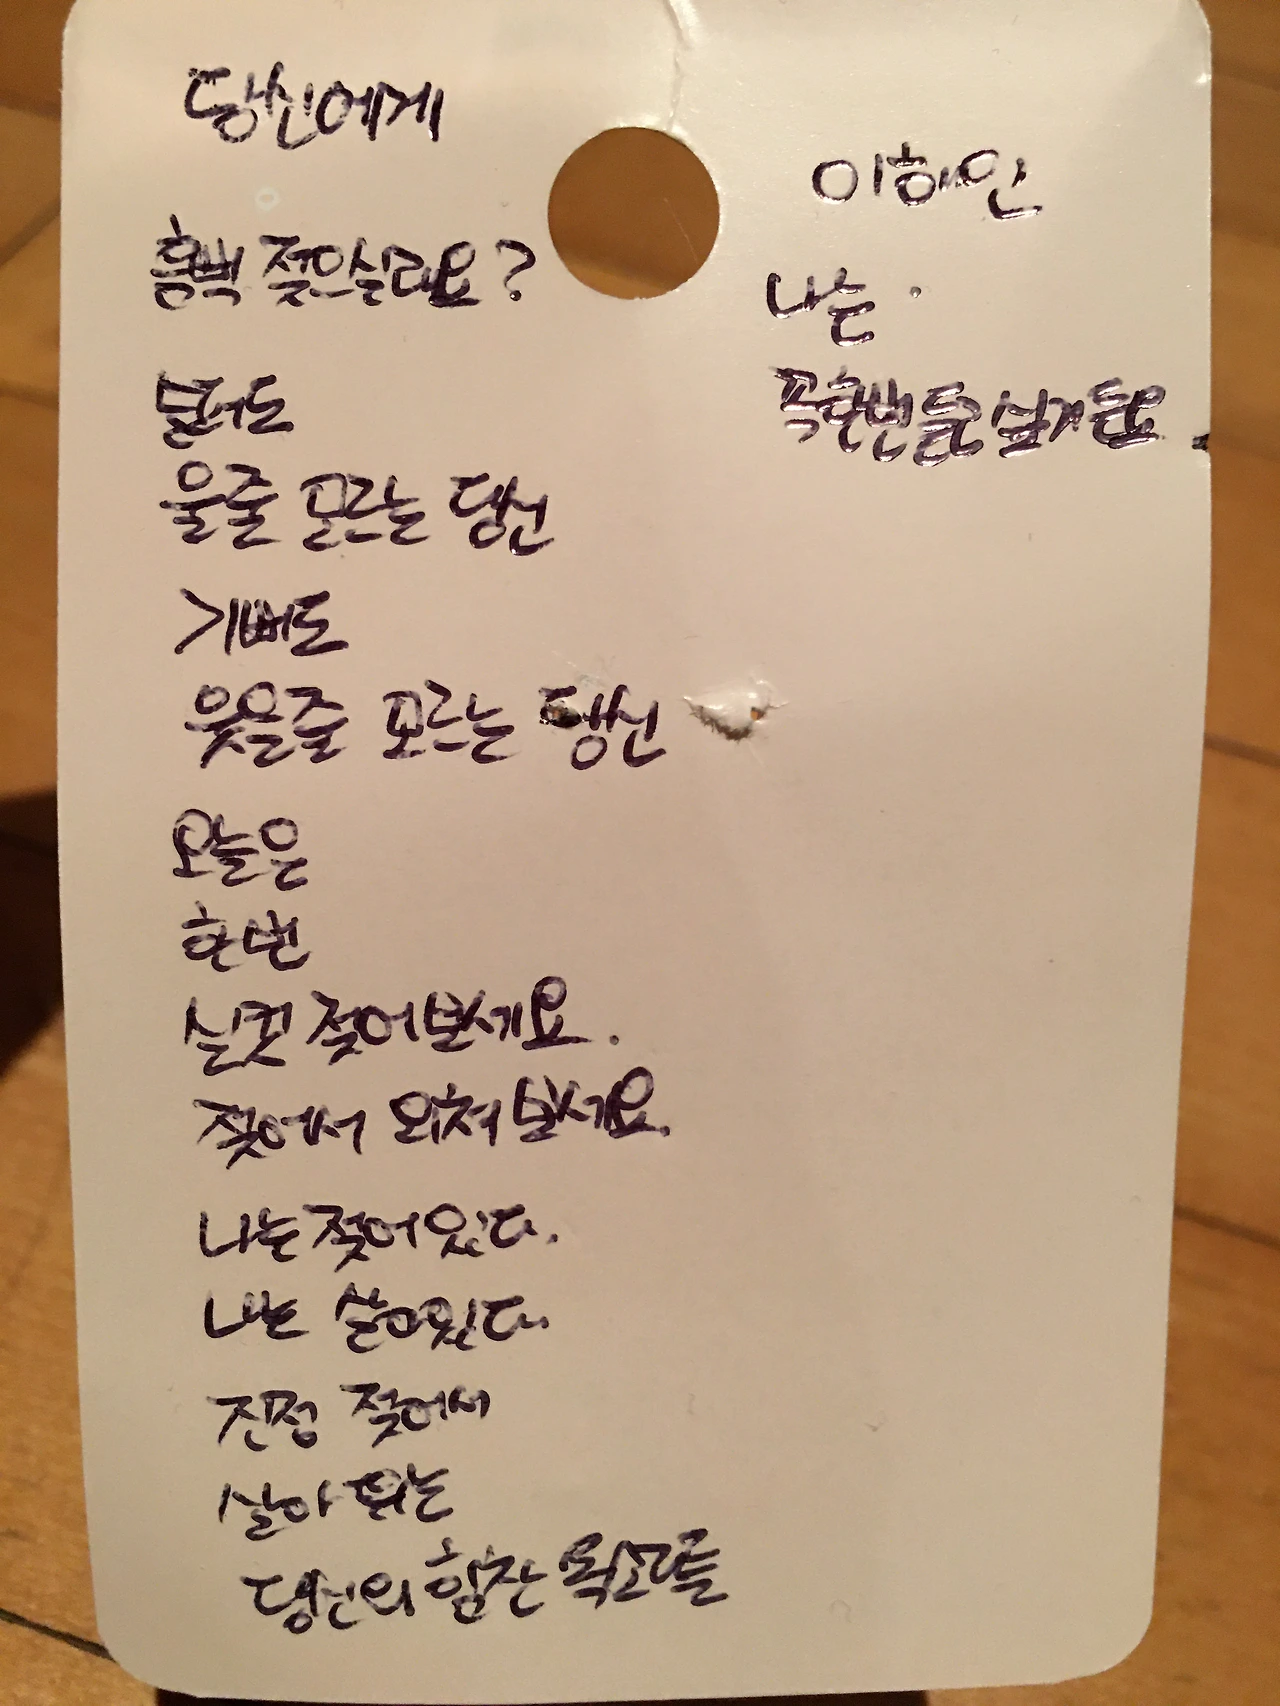 당신에게
흠뻑 젖으실래요?
슬퍼도
울줄 모르는 당신
기뻐도
웃을줄 모르는 당신
오늘은
한번
실컷 젖어보세요.
젖어서 외쳐보세요.
나는 젖어있다.
나는 살아있다.
진정 젖어서
살아 뛰는
당신의 힘찬 목소리를
이해인
나는
꼭한번 듣고 싶거든요.